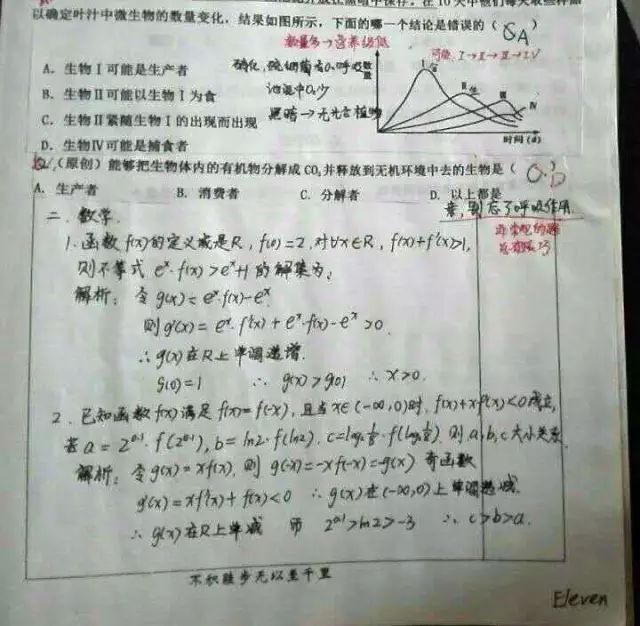 以确定叶汁中微生物的数量变化,结果如图所示,下面的哪一个结论是错误的( A )
数量多→营养级低
可能 I→II→III→IV
A. 生物Ⅰ可能是生产者
B. 生物Ⅱ可能以生物Ⅰ为食
C. 生物Ⅱ紧随生物Ⅰ的出现而出现
D. 生物Ⅳ可能是捕食者
黑暗→无光合植物
数量
I
II
III
IV
时间(d)
(原创)能够把生物体内的有机物分解成CO₂并释放到无机环境中去的生物是( D )
A. 生产者 B. 消费者 C. 分解者 D. 以上都是
别忘了呼吸作用
二、数学
1. 函数f(x)的定义域是R, f(0)=2, 对∀x∈R, f(x)+f'(x)>1,
则不等式 eˣ·f(x)>eˣ+1 的解集为:
解析: 令g(x)=eˣ·f(x)-eˣ
则g'(x)=eˣ·f'(x)+eˣ·f(x)-eˣ>0
∴g(x)在R上单调递增.
g(0)=1 ∴ g(x)>g(0) ∴x>0.
2. 已知函数f(x)满足f(x)=f(-x), 且当x∈(-∞,0)时, f(x)+xf'(x)<0成立,
若a=2^0.1·f(2^0.1), b=ln2·f(ln2), c=log₂⅛·f(log₂⅛), 则a,b,c大小关系
解析: 令g(x)=xf(x), 则 g(-x)=-xf(-x)=-g(x) 奇函数
g'(x)=xf'(x)+f(x)<0 ∴g(x)在(-∞,0)上单调递减.
∴g(x)在R上单减 而 2^0.1>ln2>-3 ∴c>b>a.
不积跬步无以至千里
Eleven